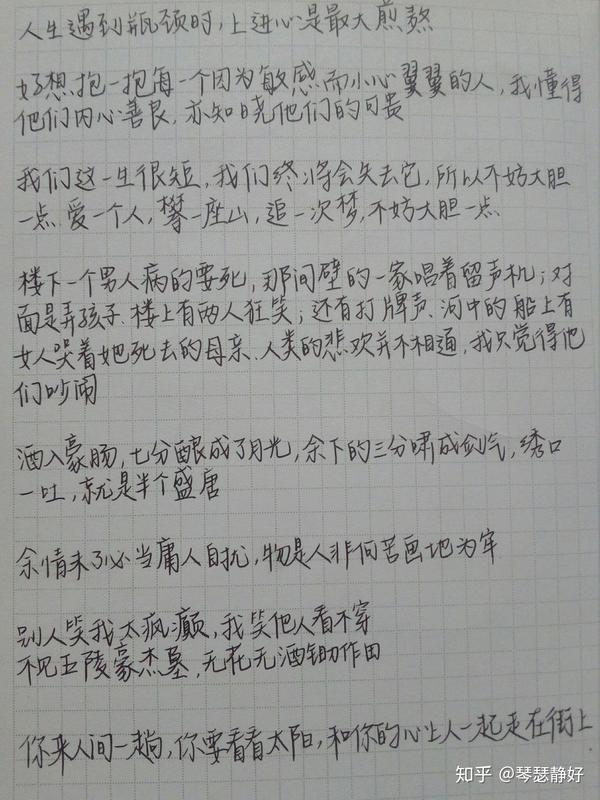 人生遇到瓶颈时,上进心是最大煎熬
好想抱一抱每一个因为敏感而小心翼翼的人,我懂得
他们内心善良,亦知晓他们的可贵
我们这一生很短,我们终将会失去它,所以不妨大胆
一点.爱一个人,攀一座山,追一次梦,不妨大胆一点
楼下一个男人病的要死,那间壁的一家唱着留声机;对
面是弄孩子.楼上有两人狂笑;还有打牌声.河中的船上有
女人哭着她死去的母亲.人类的悲欢并不相通,我只觉得他
们吵闹
酒入豪肠,七分酿成了月光,余下的三分啸成剑气,绣口
一吐,就是半个盛唐
余情未了必当庸人自扰,物是人非何苦画地为牢
别人笑我太疯癫,我笑他人看不穿
不见五陵豪杰墓,无花无酒锄作田
你来人间一趟,你要看看太阳,和你的心上人一起走在街上
知乎 @琴瑟静好